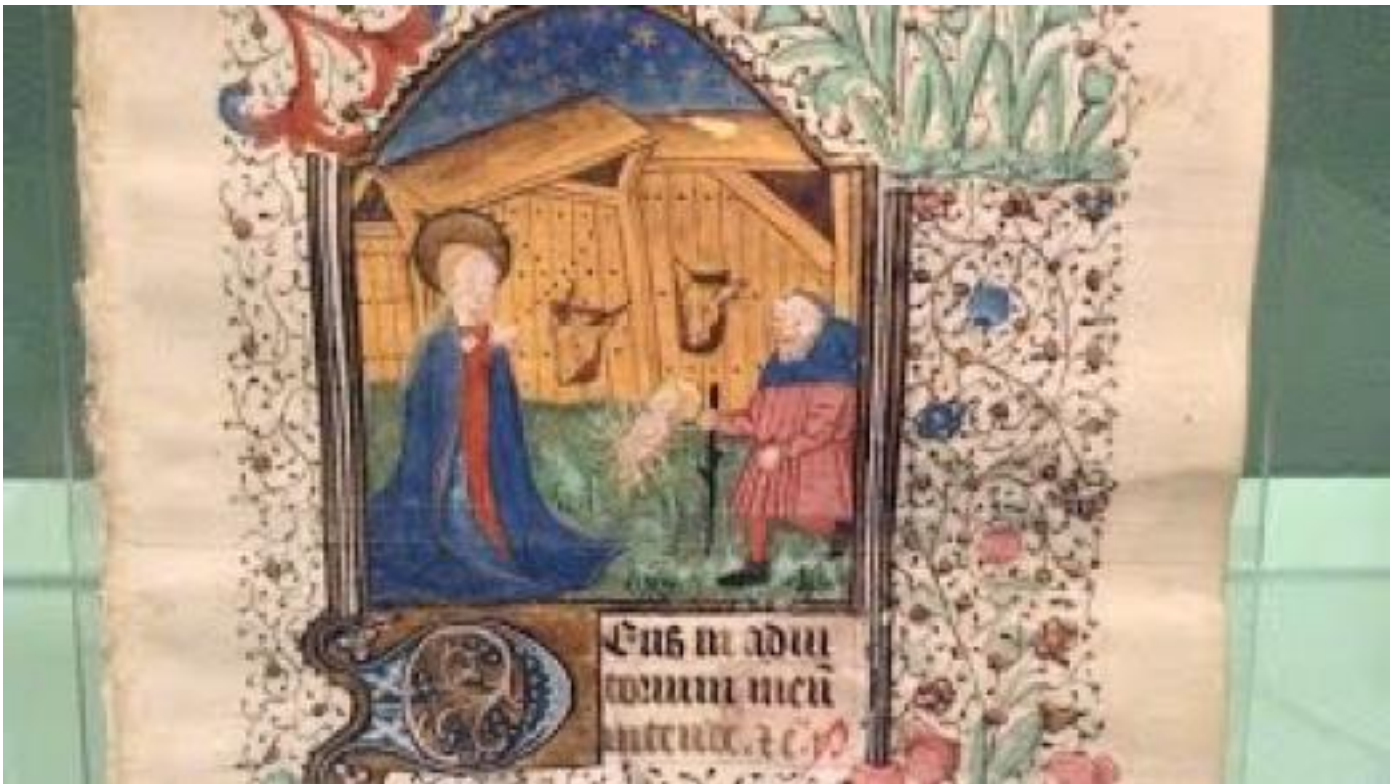 DEus in adiu
torium meū
intende. ⁊ c.